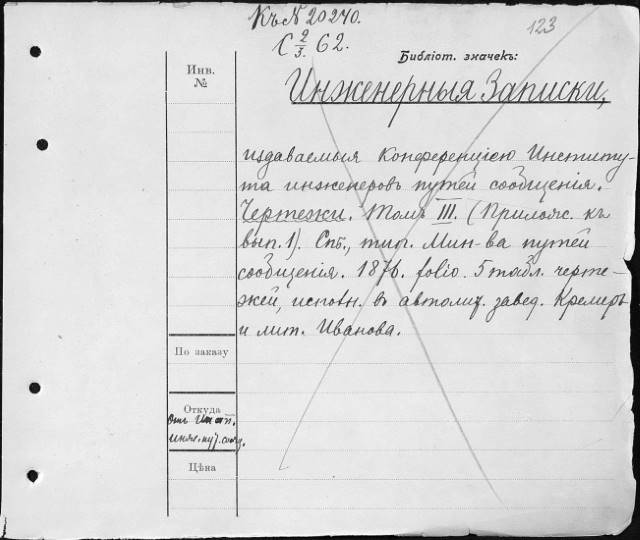 Къ № 20240.
123
C 2/3. 62.
Библіот. значекъ:
Инв.
№
Инженерныя Записки,
издаваемыя Конференціею Институ-
та инженеровъ путей сообщенія.
Чертежи. Томъ III. (Прилож. къ
вып. 1). Спб., тип. Мин-ва путей
сообщенія. 1876. folio. 5 табл. черте-
жей, исполн. въ автолит. завед. Кремеръ
и лит. Иванова.
По заказу
Откуда
Отъ
инж. пут. сообщ.
Цѣна